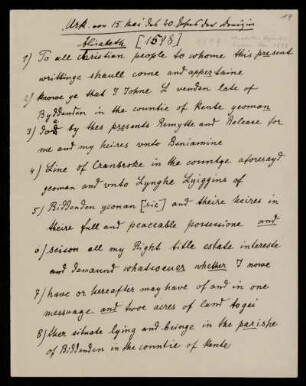 Urk. von 15. Mai des 20. Jahres der Königin
Elizabeth [1578]
1) To all christian people to whome this present
writtinge shaull come and appertaine
2) knowe ye that I Johne L venden late of
Byddenden in the countie of Kente yeoman
3) doe by ther presents Remytte and Release for
me and my heires vnto Beniamine
4) Line of Cranbroke in the countye aforesayd
yeoman and vnto Lynghe Lyiggins of
5) Biddenden yeonan [sic] and theire heires in
theire full and peaceable possessione and
6) seison all my Right title estate intereste
and demannd whatsoever whether I nowe
7) have or hereafter may have of and in one
messuage and twoe acres of land toge
8) ther situate lying and beinge in the parishe
of Biddenden in the countie of Kente